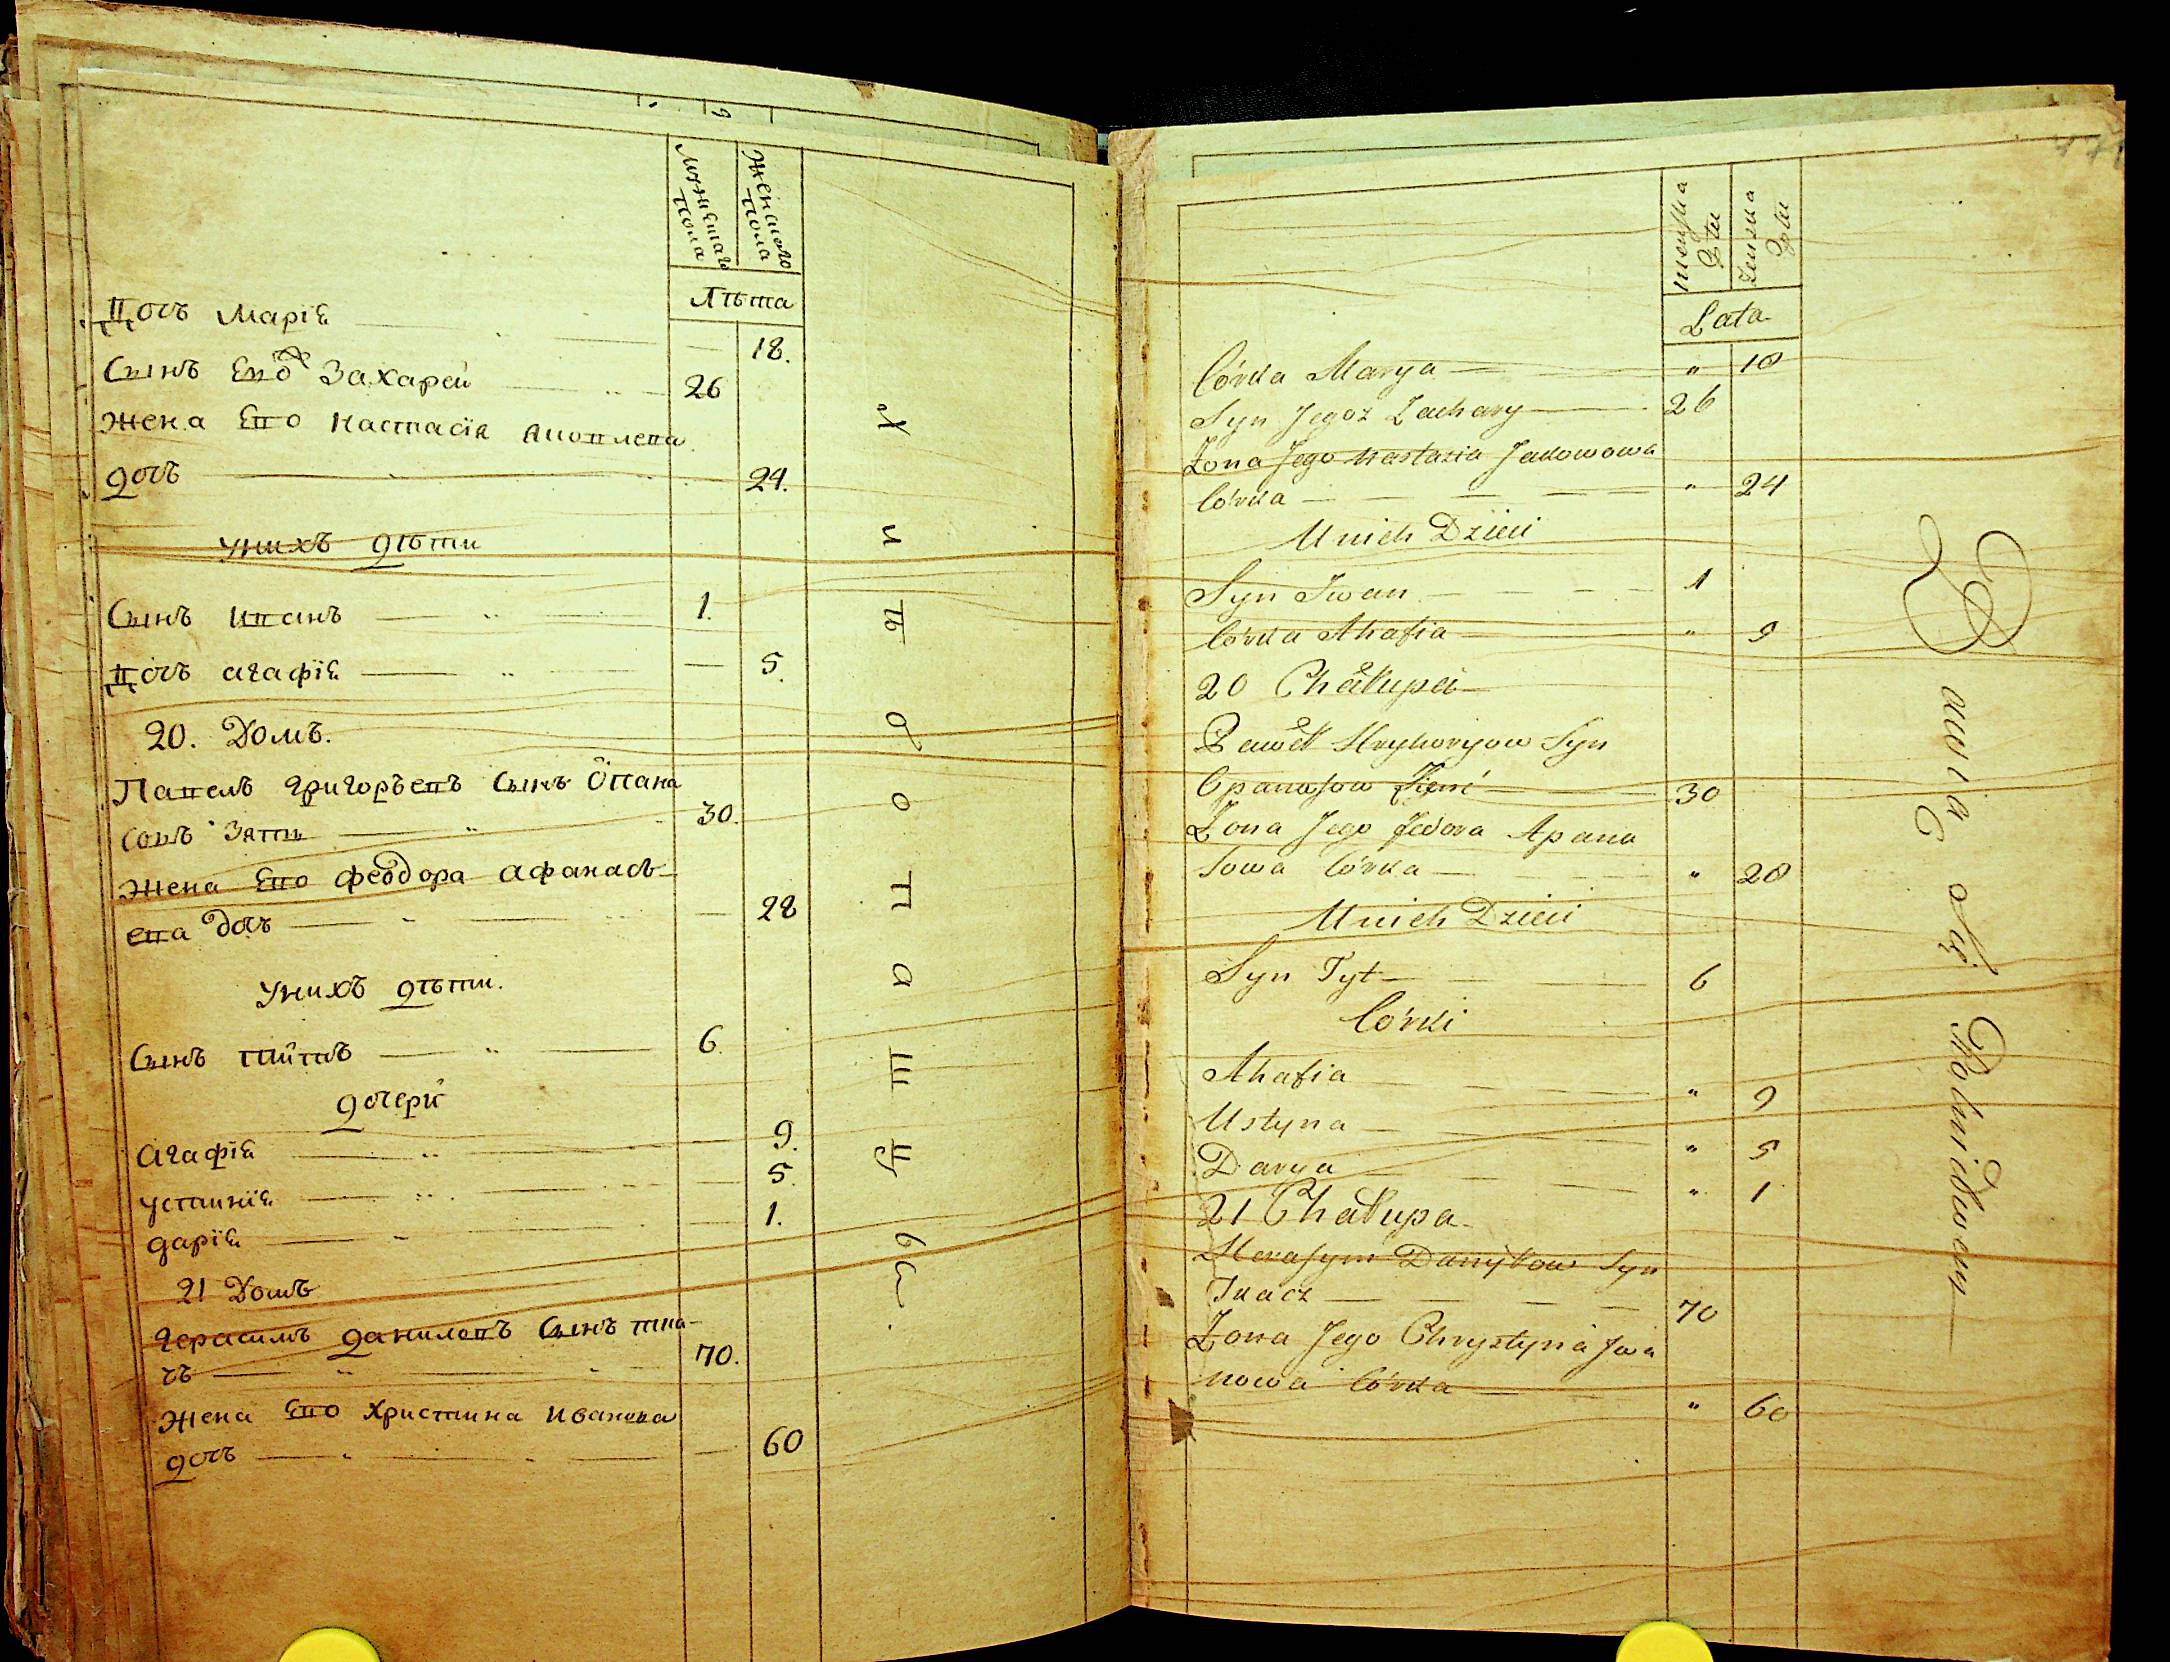 Мужескаго пола
Женского пола
Лѣта
Дочь Марія — 18.
Сынъ Его Захарей 26
Жена Его Настасія Яковлева
дочь 24.
У нихъ дѣти
Сынъ Иванъ — " 1.
Дочь Агафія — " — 5.
20. Домъ.
Павелъ Григорьевъ Сынъ Опана
совъ Зять — " 30.
Жена Его Феодора Афанась-
ева дочь — 28
У нихъ дѣти.
Сынъ Титъ — " — 6.
дочери
Агафія — 9.
Устинія — 5.
дарія — 1.
21 Домъ
Герасимъ Даниловъ Сынъ тка-
чъ — " 70.
Жена Его Христина Иванова
дочь — 60
Хлѣбопашцы.
męzka Płci
żenska Płci
Lata
Córka Marya — " 18
Syn Jegoż Zachary — 26
Żona Jego Nastazia Jakowowa
Córka — " 24
U nich Dzieci
Syn Iwan — 1
Córka Ahafia — " 5
20 Chałupa
Paweł Hryhoryow Syn
Opanasow Zięć — 30
Żona Jego Fedora Apana
sowa Córka — " 28
U nich Dzieci
Syn Tyt — 6
Córki
Ahafia — " 9
Ustyna — " 5
Darya — " 1
21 Chałupa
Herasym Daniłow Syn
Tkacz — 70
Żona Jego Chrystyna Iwa
nowa Córka — " 60
Bawią Się Rolnictwem